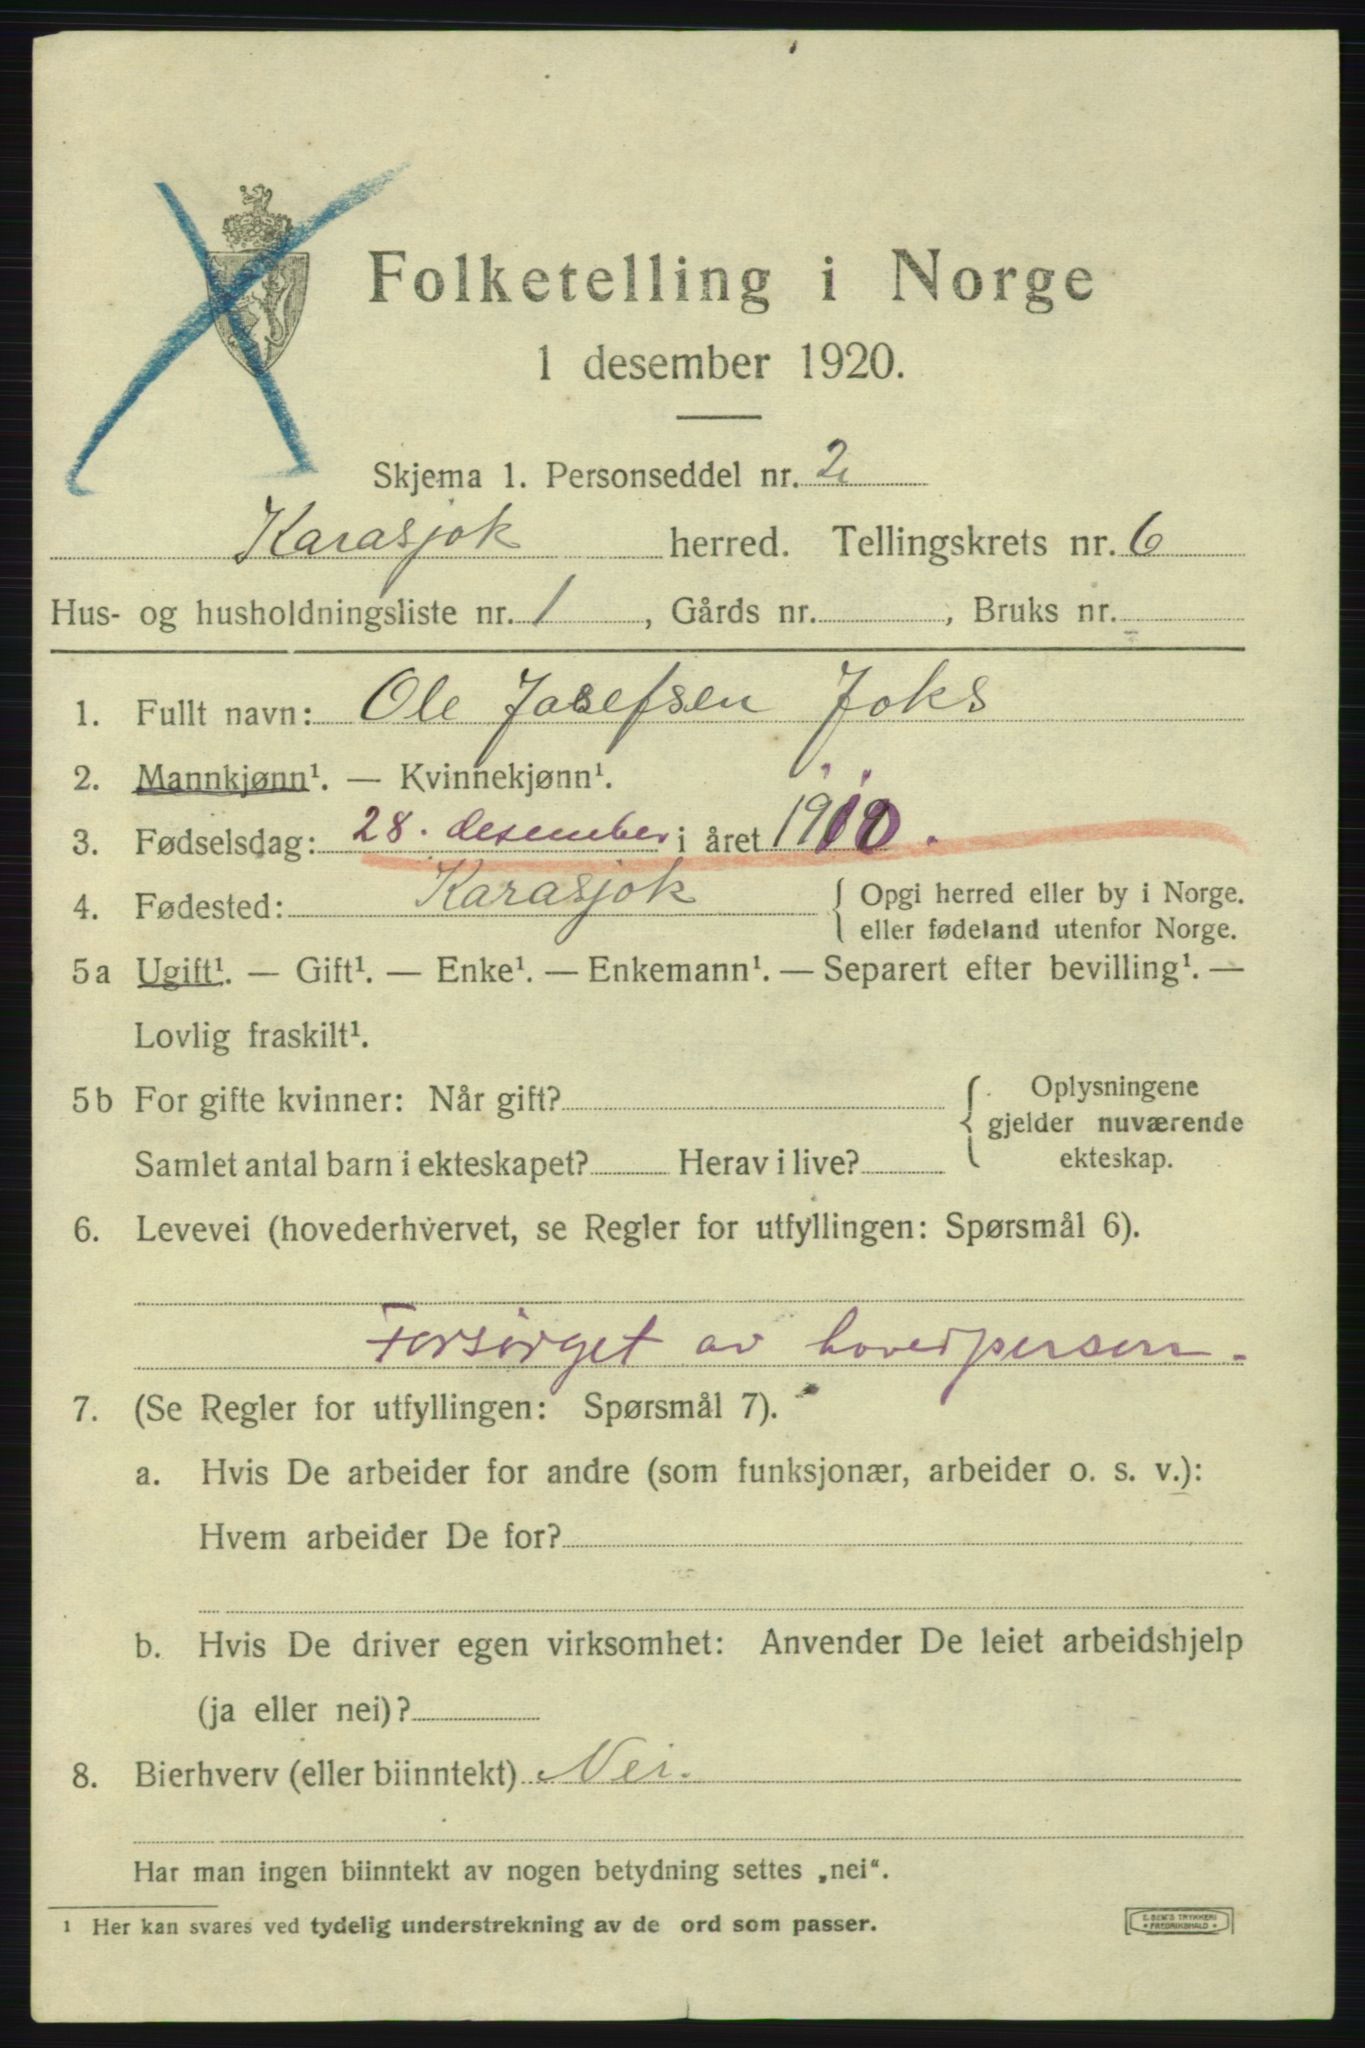 Folketelling i Norge
1 desember 1920.
Skjema 1. Personseddel nr. 2
Karasjok herred. Tellingskrets nr. 6
Hus- og husholdningsliste nr. 1, Gårds nr. , Bruks nr.
1. Fullt navn: Ole Josefsen Joks
2. Mannkjønn¹. — Kvinnekjønn¹.
3. Fødselsdag: 28. desember i året 1910.
4. Fødested: Karasjok { Opgi herred eller by i Norge.
eller fødeland utenfor Norge.
5a Ugift¹. — Gift¹. — Enke¹. — Enkemann¹. — Separert efter bevilling¹. —
Lovlig fraskilt¹.
5b For gifte kvinner: Når gift? { Oplysningene
gjelder nuværende
Samlet antal barn i ekteskapet? Herav i live? ekteskap.
6. Levevei (hovederhvervet, se Regler for utfyllingen: Spørsmål 6).
Forsørget av hovedperson.
7. (Se Regler for utfyllingen: Spørsmål 7).
a. Hvis De arbeider for andre (som funksjonær, arbeider o. s. v.):
Hvem arbeider De for?
b. Hvis De driver egen virksomhet: Anvender De leiet arbeidshjelp
(ja eller nei)?
8. Bierhverv (eller biinntekt) Nei.
Har man ingen biinntekt av nogen betydning settes „nei“.
¹ Her kan svares ved tydelig understrekning av de ord som passer.
E. SEM'S TRYKKERI
FREDRIKSHALD